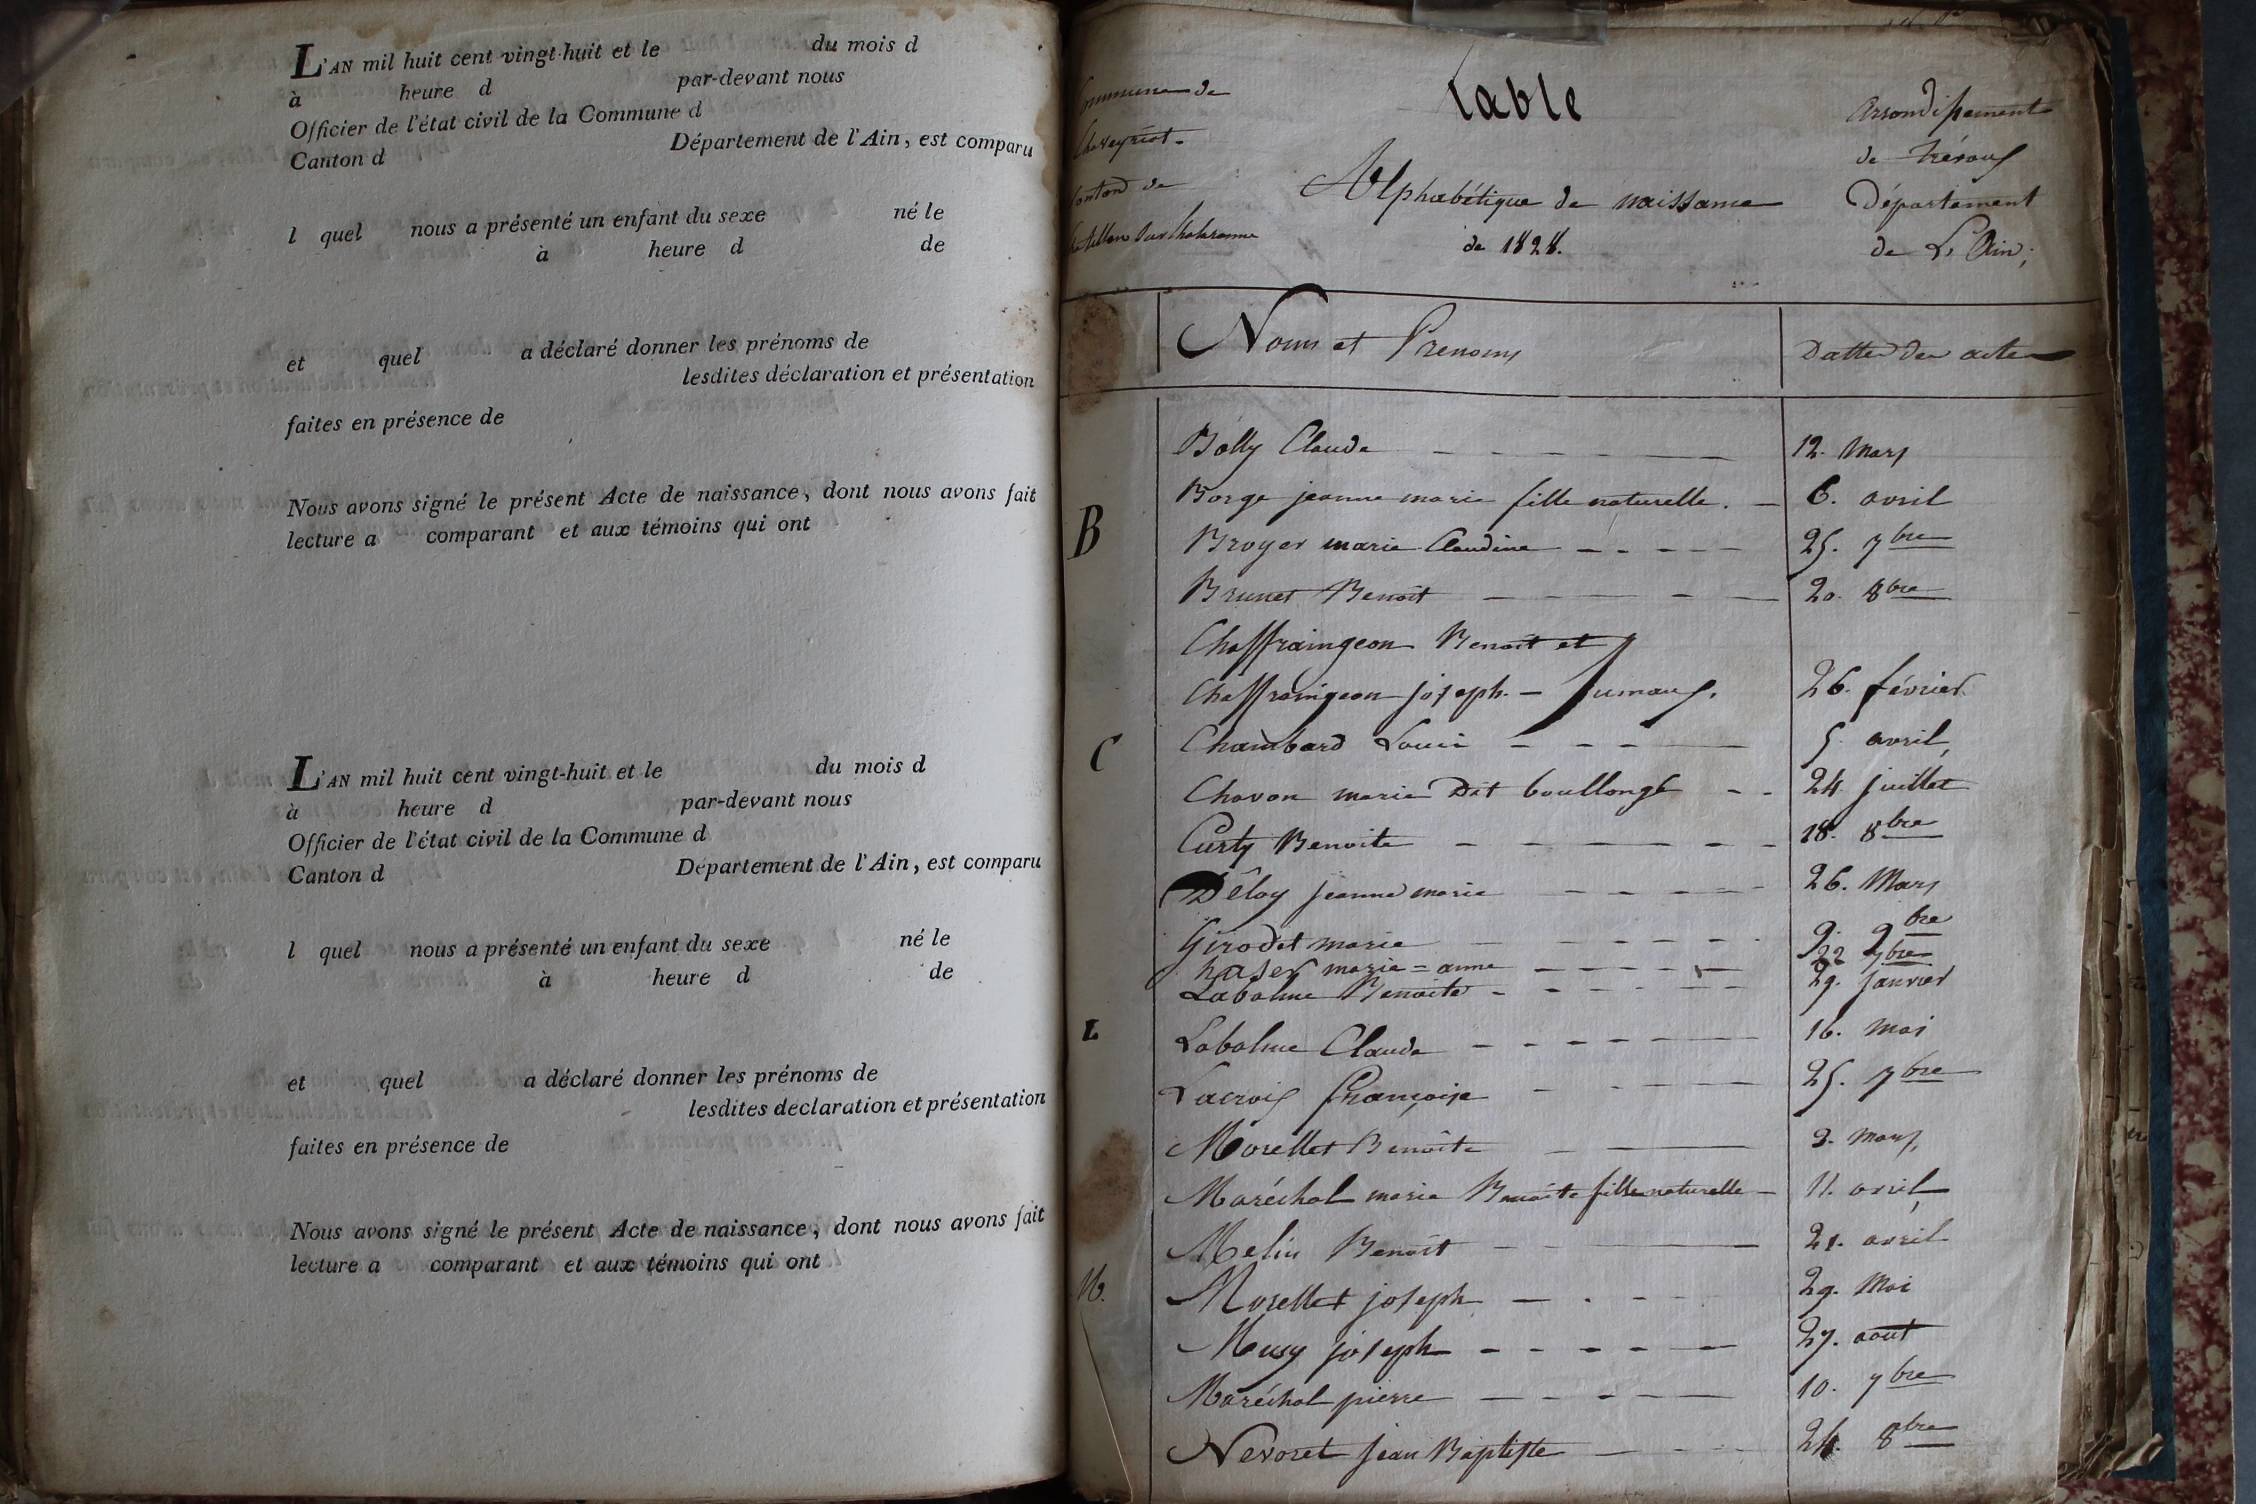 L'AN mil huit cent vingt-huit et le du mois d
à heure d par-devant nous
Officier de l'état civil de la Commune d
Canton d Département de l'Ain, est comparu
l quel nous a présenté un enfant du sexe né le
à heure d de
et quel a déclaré donner les prénoms de
lesdites déclaration et présentation
faites en présence de
Nous avons signé le présent Acte de naissance, dont nous avons fait
lecture a comparant et aux témoins qui ont
L'AN mil huit cent vingt-huit et le du mois d
à heure d par-devant nous
Officier de l'état civil de la Commune d
Canton d Département de l'Ain, est comparu
l quel nous a présenté un enfant du sexe né le
à heure d de
et quel a déclaré donner les prénoms de
lesdites declaration et présentation
faites en présence de
Nous avons signé le présent Acte de naissance, dont nous avons fait
lecture a comparant et aux témoins qui ont
Commune de
Chaveyriat.
Canton de
Chatillon sur Chalaronne
Table
Alphabétique de naissance
de 1828.
Arrondissement
de Trévoux
Département
de L'Ain;
Noms et Prenoms Dattes des actes
Bolly Claude 12. Mars
B
Borge jeanne marie fille naturelle. 6. avril
Broyer marie Claudine 25. 7bre
Brunet Benoit 20. 8bre
Chaffraingeon Benoit et
Chaffraingeon joseph - Jumaux. 26. février
C
Chambard Louis 5. avril
Chavon marie Dit boullongé 24. juillet
Curty Benoite 18. 8bre
Déloy jeanne marie 26. Mars
Girodet marie 9. 9bre
marie=anne 22 7bre
Labalme Benoite 29. janvier
L
Labalme Claude 16. mai
Lacroix françoise 25. 7bre
Morellet Benoite 2. mars
Maréchal marie Benoite fille naturelle 11. avril
Melin Benoit 21. avril
M.
Morellet joseph 29. Mai
Musy joseph 27. aout
Maréchal pierre 10. 7bre
Nevoret jean Baptiste 24. 8bre